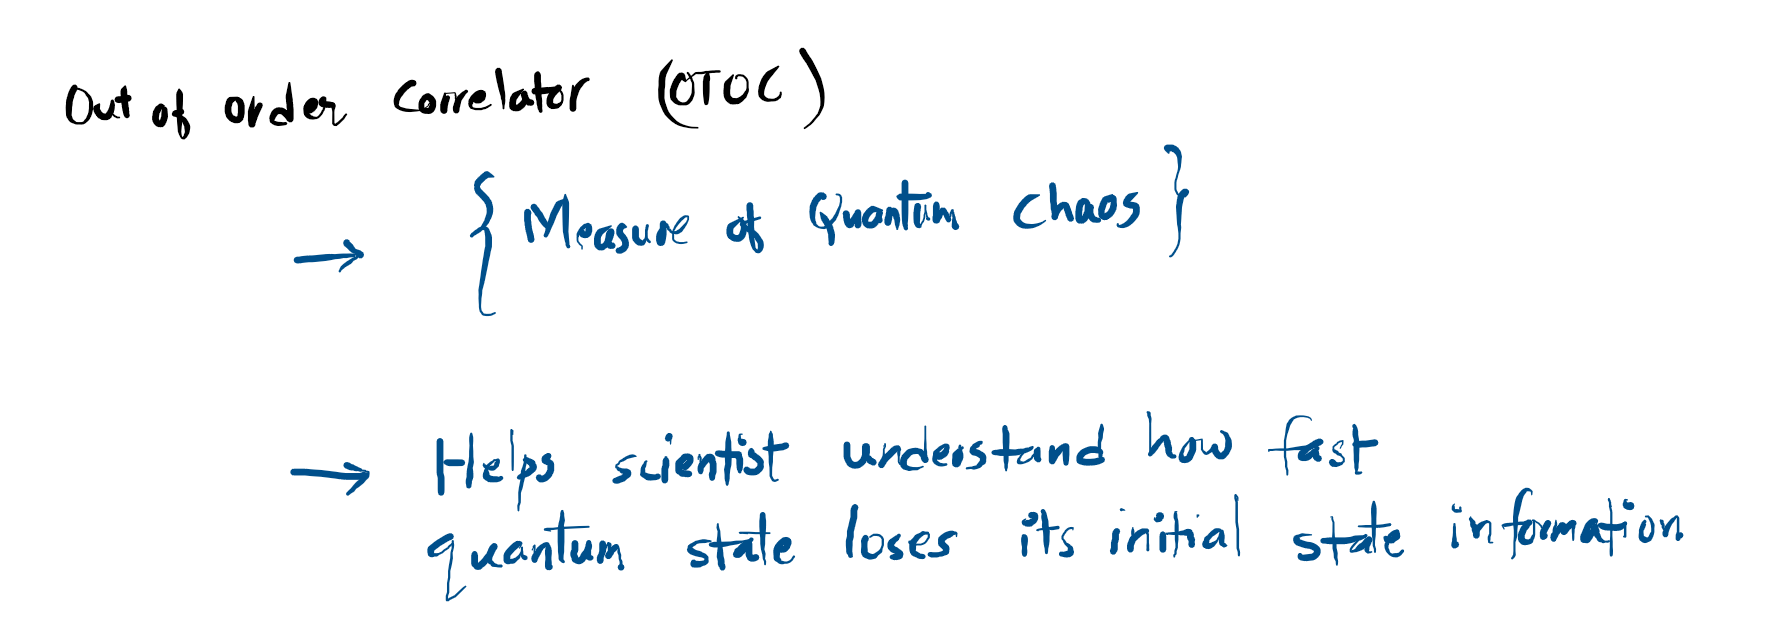 Out of order Correlator (OTOC)
→ { Measure of Quantum Chaos }
→ Helps scientist understand how fast
quantum state loses its initial state information